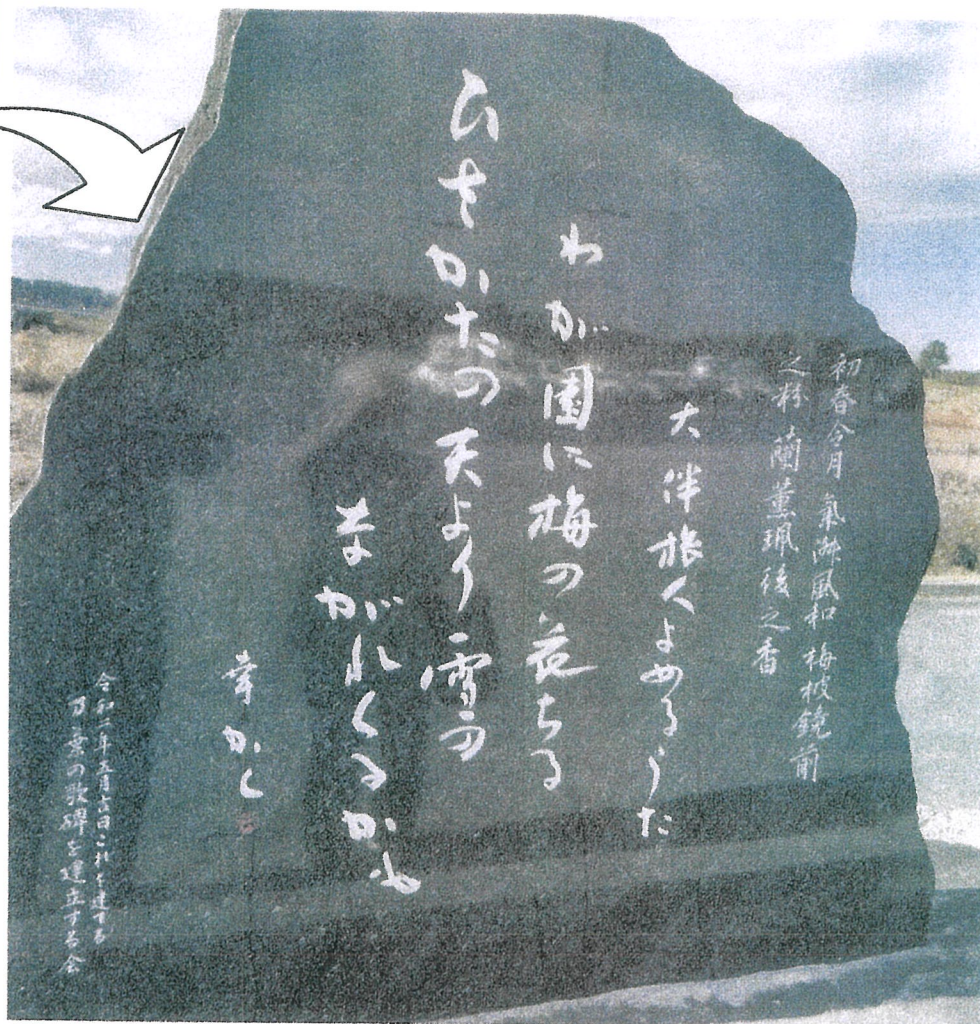 初春令月 氣淑風和 梅披鏡前
之粉 蘭薫珮後之香
大伴旅人よめるうた
わが園に梅の花ちる
ひさかたの天より雪の
ながれくるかも
かく
令和二年五月吉日これを建てる
万葉の歌碑を建立する会